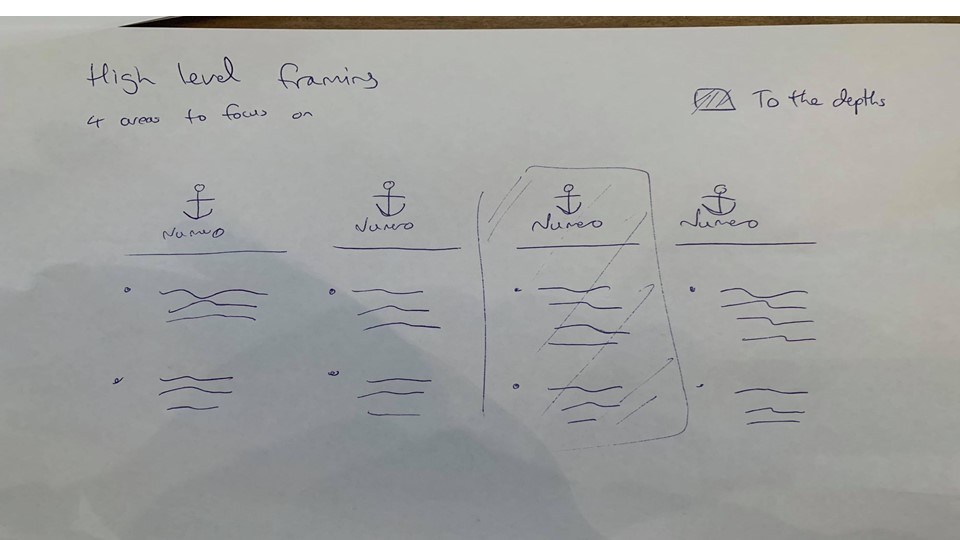 High level framing
4 areas to focus on
To the depths
Numero
Numero
Numero
Numero